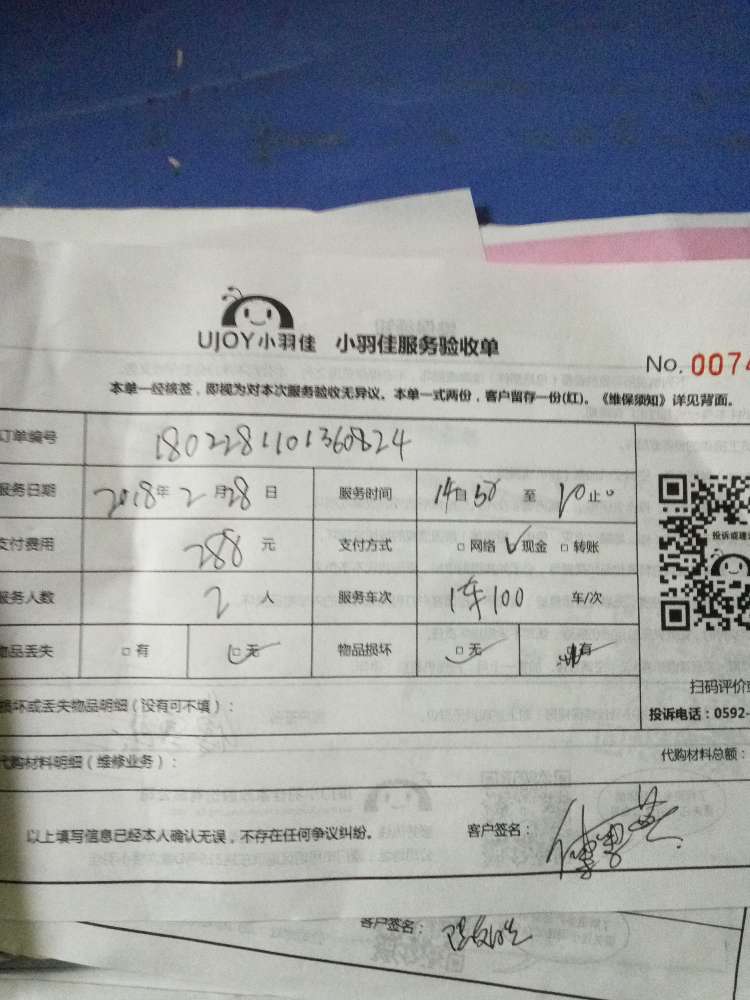 UJOY小羽佳 小羽佳服务验收单
No. 0074
本单一经核签，即视为对本次服务验收无异议。本单一式两份，客户留存一份(红)。《维保须知》详见背面。
订单编号 1802281101360824
服务日期 2018年2月28日 服务时间 14自50至 止。
支付费用 288元 支付方式 □网络 ✓现金 □转账
服务人数 2人 服务车次 1车100 车/次
物品丢失 □有 ☑无 物品损坏 ☑无 有
投诉或建议
损坏或丢失物品明细（没有可不填）：
扫码评价或
投诉电话：0592-
代购材料明细（维修业务）：
代购材料总额：
以上填写信息已经本人确认无误，不存在任何争议纠纷。 客户签名：
客户签名：